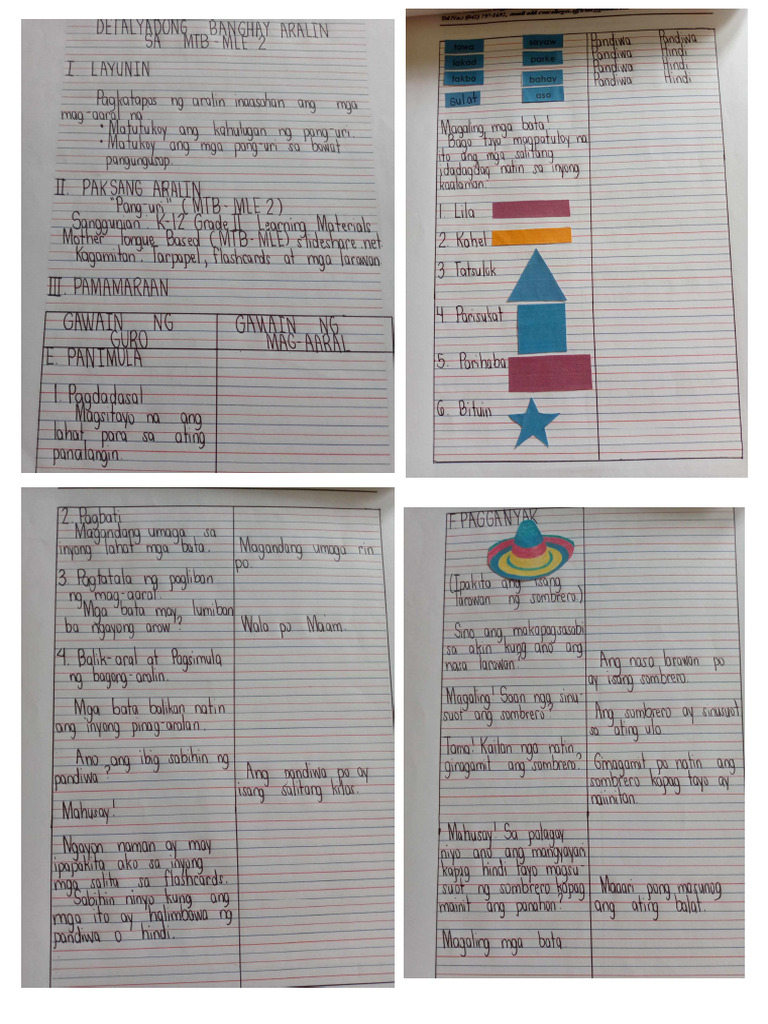 DETALYADONG BANGHAY ARALIN
SA MTB-MLE 2
I. LAYUNIN
Pagkatapos ng aralin inaasahan ang mga
mag-aaral na
• Matutukoy ang kahulugan ng pang-uri.
• Matukoy ang mga pang-uri sa bawat
pangungusap.
II. PAKSANG ARALIN
"Pang-uri" (MTB-MLE 2)
Sanggunian: K-12 Grade II Learning Materials
Mother Tongue Based (MTB-MLE) slideshare.net
Kagamitan: Tarpapel, flashcards at mga larawan
III. PAMAMARAAN
GAWAIN NG
GURO
GAWAIN NG
MAG-AARAL
E. PANIMULA
1. Pagdadasal
Magsitayo na ang
lahat, para sa ating
panalangin.
2. Pagbati
Magandang umaga sa
inyong lahat mga bata.
Magandang umaga rin
po.
3. Pagtatala ng pagliban
ng mag-aaral.
Mga bata may lumiban
ba ngayong araw?
Wala po Ma'am.
4. Balik-aral at Pagsimula
ng bagong-aralin.
Mga bata balikan natin
ang inyong pinag-aralan.
Ano ang ibig sabihin ng
pandiwa?
Ang pandiwa po ay
isang salitang kilos.
Mahusay!
Ngayon naman ay may
ipapakita ako sa inyong
mga salita sa flashcards.
Sabihin ninyo kung ang
mga ito ay halimbawa ng
pandiwa o hindi.
tawa sayaw Pandiwa Pandiwa
lakad parke Pandiwa Hindi
takbo bahay Pandiwa Hindi
sulat aso Pandiwa Hindi
Magaling mga bata!
Bago tayo magpatuloy na
ito ang mga salitang
idadagdag natin sa inyong
kaalaman.
1. Lila
2. Kahel
3 Tatsulok
4. Parisukat
5. Parihaba
6. Bituin
F. PAGGANYAK
(Ipakita ang isang
larawan ng sombrero.)
Sino ang makapagsasabi
sa akin kung ano ang
nasa larawan?
Ang nasa larawan po
ay isang sombrero.
Magaling! Saan nga sinu-
suot ang sombrero?
Ang sumbrero ay sinusuot
sa ating ulo
Tama! Kailan nga natin
ginagamit ang sombrero?
Gmagamit po natin ang
sombrero kapag tayo ay
naiinitan.
Mahusay! Sa palagay
niyo ano ang mangyayari
kapag hindi tayo magsu-
suot ng sombrero kapag
mainit ang panahon?
Maaari pong masunog
ang ating balat.
Magaling mga bata.